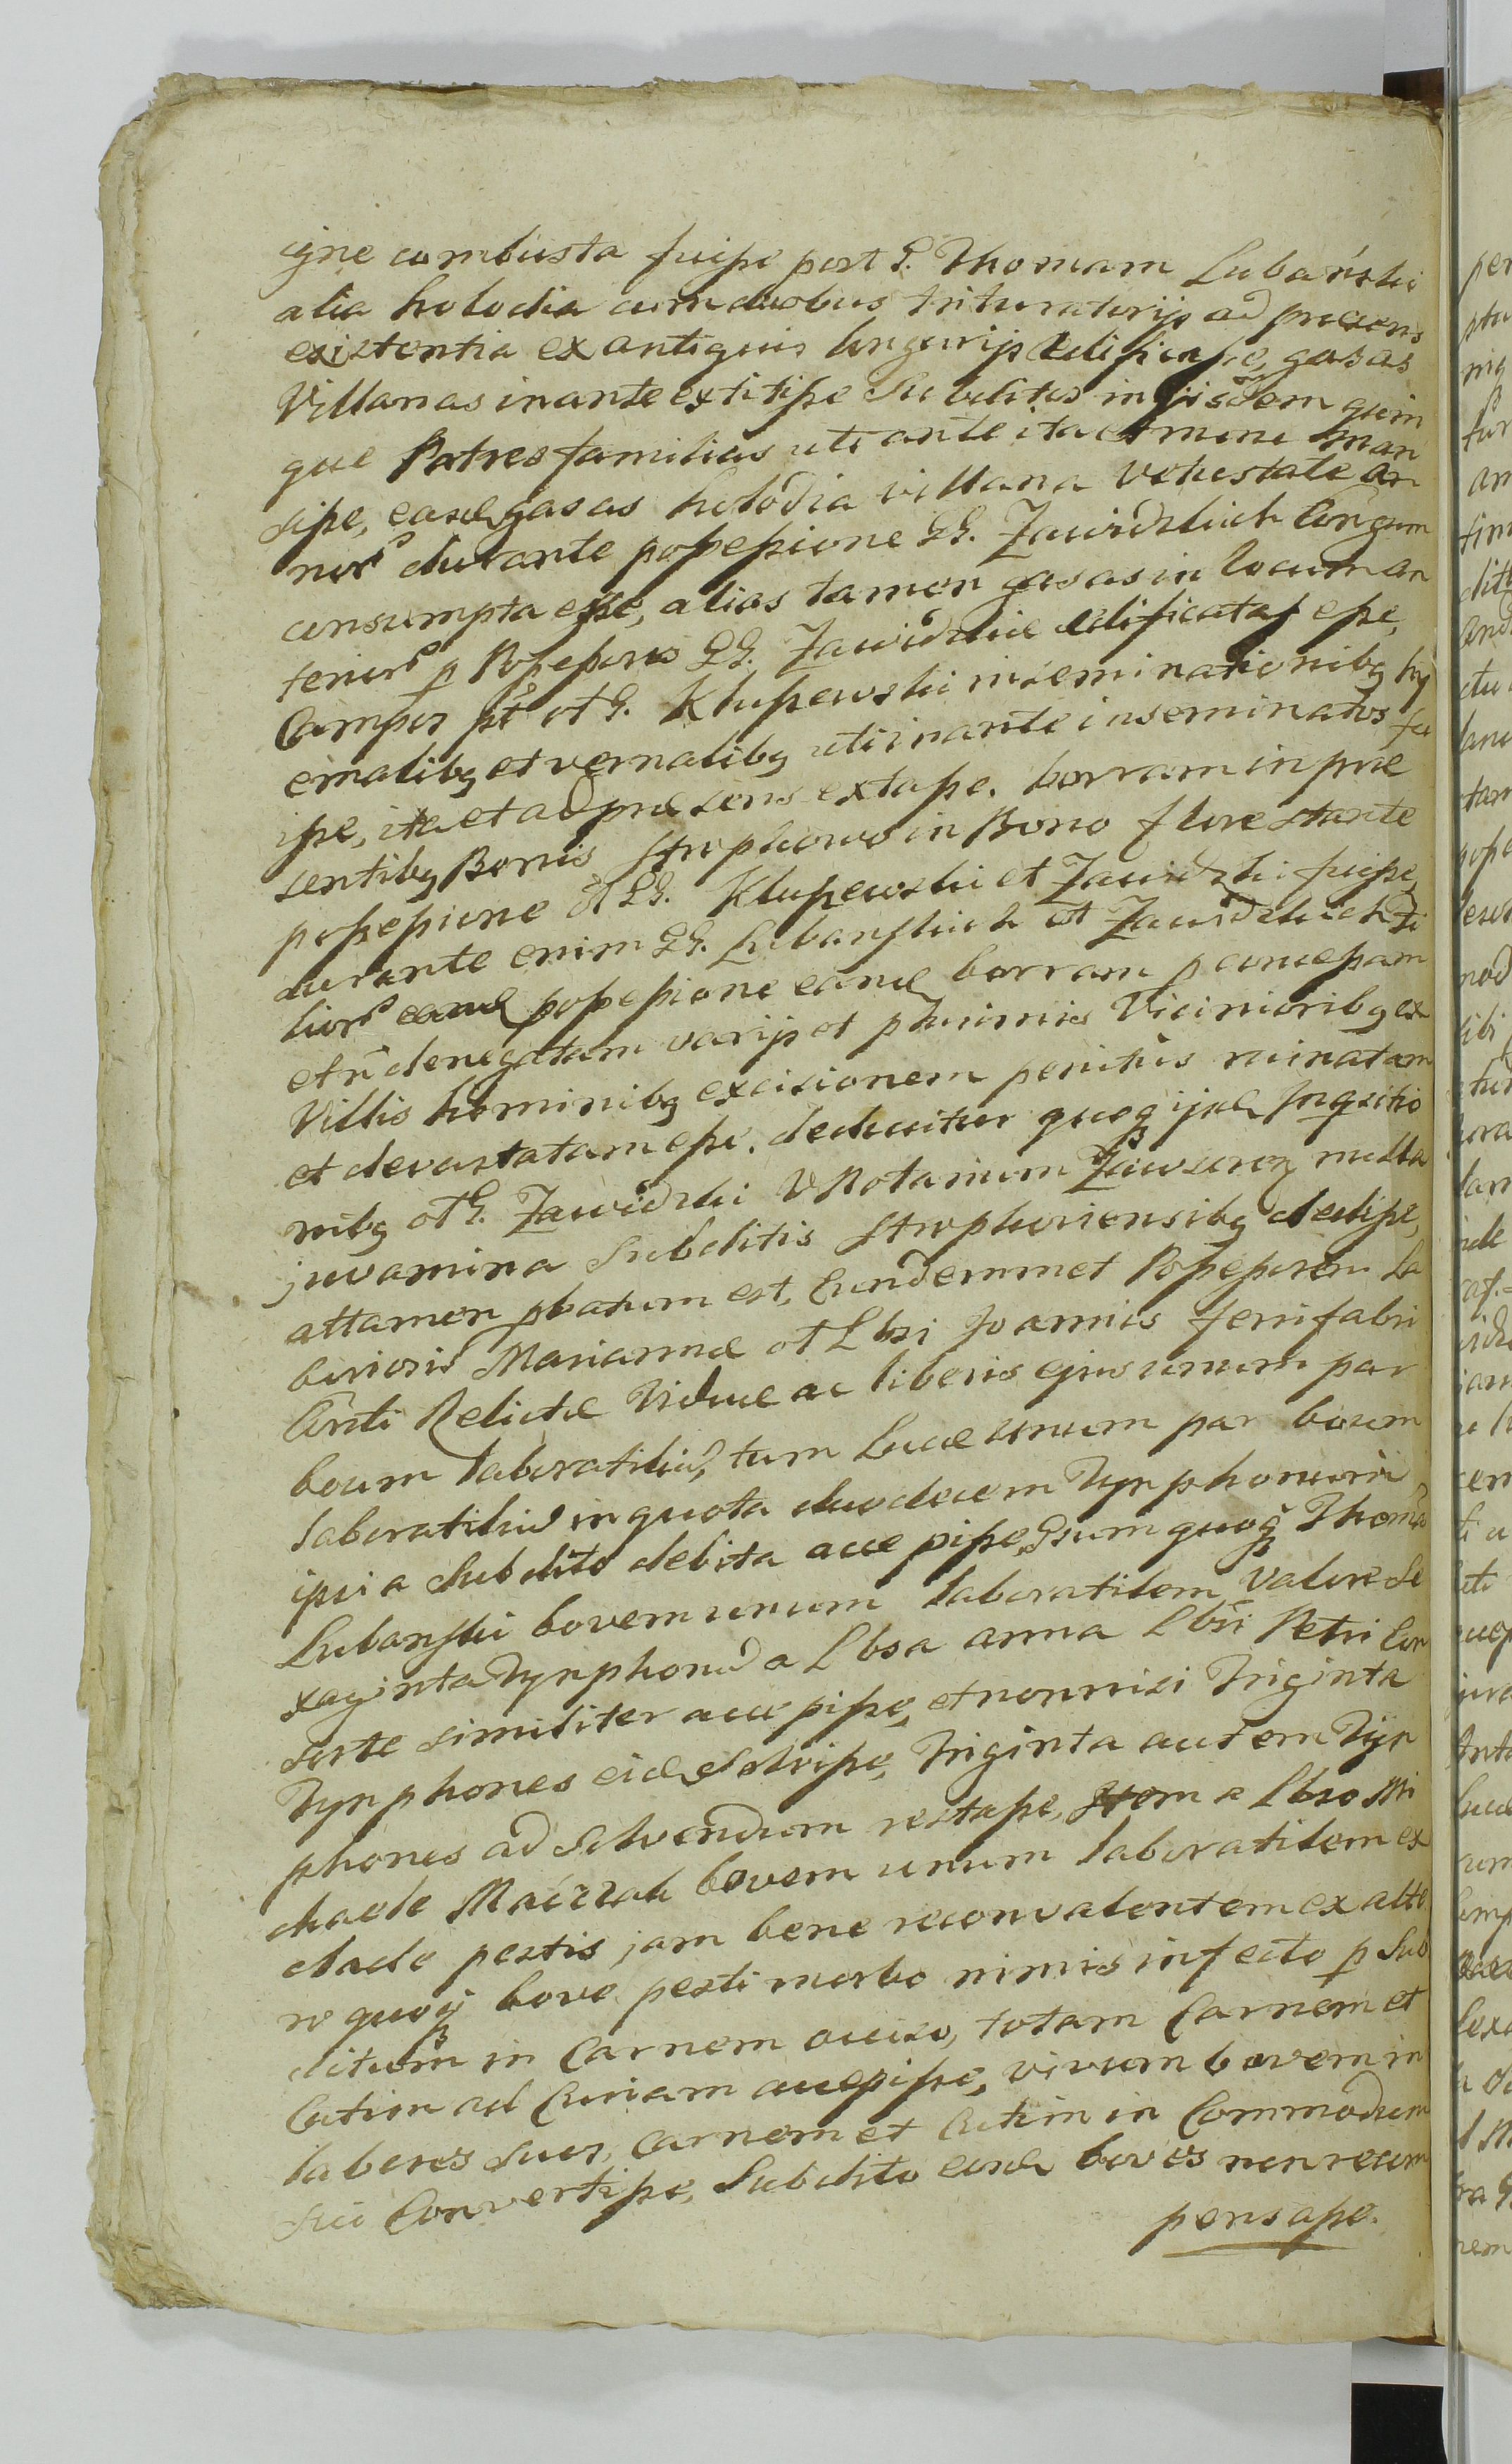 igne combusta fuisse post G. Thomam Lubański
alia holodia cum duobus trituratorijs ad praesens
existentia ex antiquis lingurijs edificasse, gasas
Villanas in ante extitisse Subditos in ijsdem quin
que Patres familias uti ante ita et mine man
sisse, easd gasas holodia villana vetustate an
nor durante possessione GG. Zawidzkich Congrum
consumpta esse, alias tamen gasas in locum an
terior p Possessores GG. Zawidzkie edificatas esse,
Campos pt ot G. Klussewski inseminationibq hy
emalibq et vernalibq uti in ante inseminatos fu
isse, ita et ad praesens extasse. borram in prae
sentibq Bonis Strophowo in Bono flore stante
possessione ot GG. Klussewski et Zawidzki fuisse,
durante enim GG. Lubanskich ot Zawidzkich ti
lior eand possessione eand borram p concessam
et n denegatam varijs ot plurimis Vicinioribq ex
Villis hominibq excisionem penitus ruinatam
et devastatam esse. deducitur quoq ijsd Inqsitio
nibq ot G. Zawidzki V Notarium Zawscrog nulla
juvamina Subditis Strophoviensibq dedisse,
attamen pbatum est, Eundemmet Possessorem La
boriosi Mariannae ot Lbsi Joannis ferrifabri
Consti Relictae Viduae ac liberis ejus unum par
boum laboratiliu, tum Lucae unum par boum
laboratiliu in quota duodecem Tynphonum
ipsi a Subdito debita accepisse, Gsum quoq Thoma
Lubanski bovem unum laboratilem Valore Se
xaginta Tynphonu a Lbsa anna Lbsi Petri Con
sorte similiter accepisse, et nonnisi Triginta
Tynphones eid Solvisse, Triginta autem Tyn
phones ad Solvendum restasse, Item a Lbso Mi
chaele bovem unum laboratilem ex
clade pestis jam bene reconvalentem ex alte
ro quoq bove pesti morbo nimis infecto p Sub
ditum in Carnem occiso, totam Carnem et
Cutim ad Curiam accepisse, vivum bovem in
labores suos, Carnem et Cutim in Commodum
sui Convertisse, Subdito eosd boves non recom
pensasse.